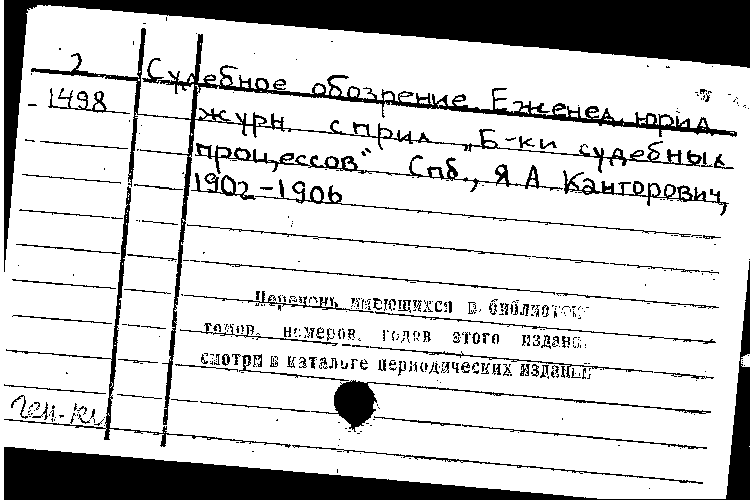 2
1498
Судебное обозрение. Еженед. юрид.
журн. с прил. „Б-ки судебных
процессов". Спб., Я.А. Канторович,
1902-1906
Перечень имеющихся в библиотеке
томов, номеров, годов этого издания
смотри в каталоге периодических изданий